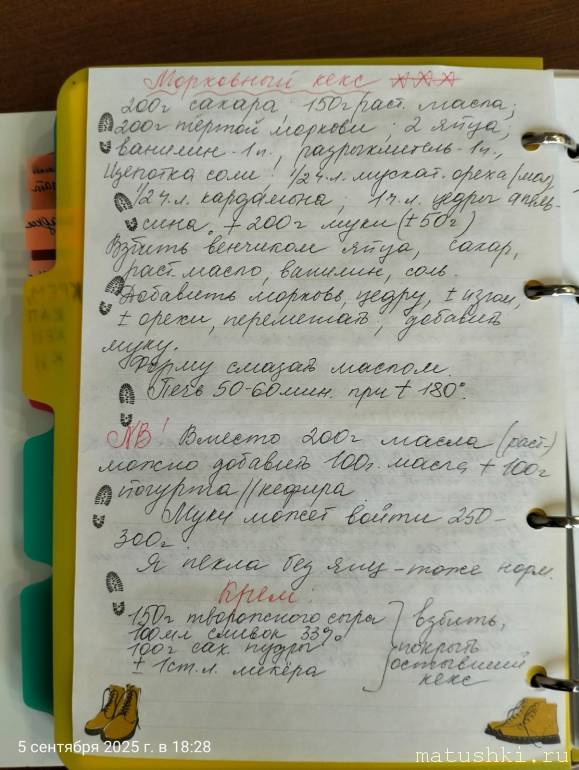 Морковный кекс ***
200г сахара 150г раст. масла;
200г тёртой моркови; 2 яйца;
ванилин - 1п., разрыхлитель - 1ч.,
Щепотка соли. 1/2 ч.л. мускат. ореха (мол)
1/2 ч.л. кардамона; 1ч.л. цедры апель-
сина. + 200г муки (± 50г)
Взбить венчиком яйца, сахар,
раст. масло, ванилин, соль.
Добавить морковь, цедру, ± изюм,
± орехи, перемешать, добавить
муку.
Форму смазать маслом.
Печь 50-60 мин. при t 180°.
NB! Вместо 200г масла (раст.)
можно добавить 100г. масла + 100г
йогурта // кефира
Муки может войти 250-
300г
Я пекла без яиц - тоже норм.
Крем:
150г творожного сыра
100мл сливок 33%
100г сах. пудры
± 1ст. л. ликёра
взбить,
покрыть
остывший
кекс
5 сентября 2025 г. в 18:28
matushki.ru